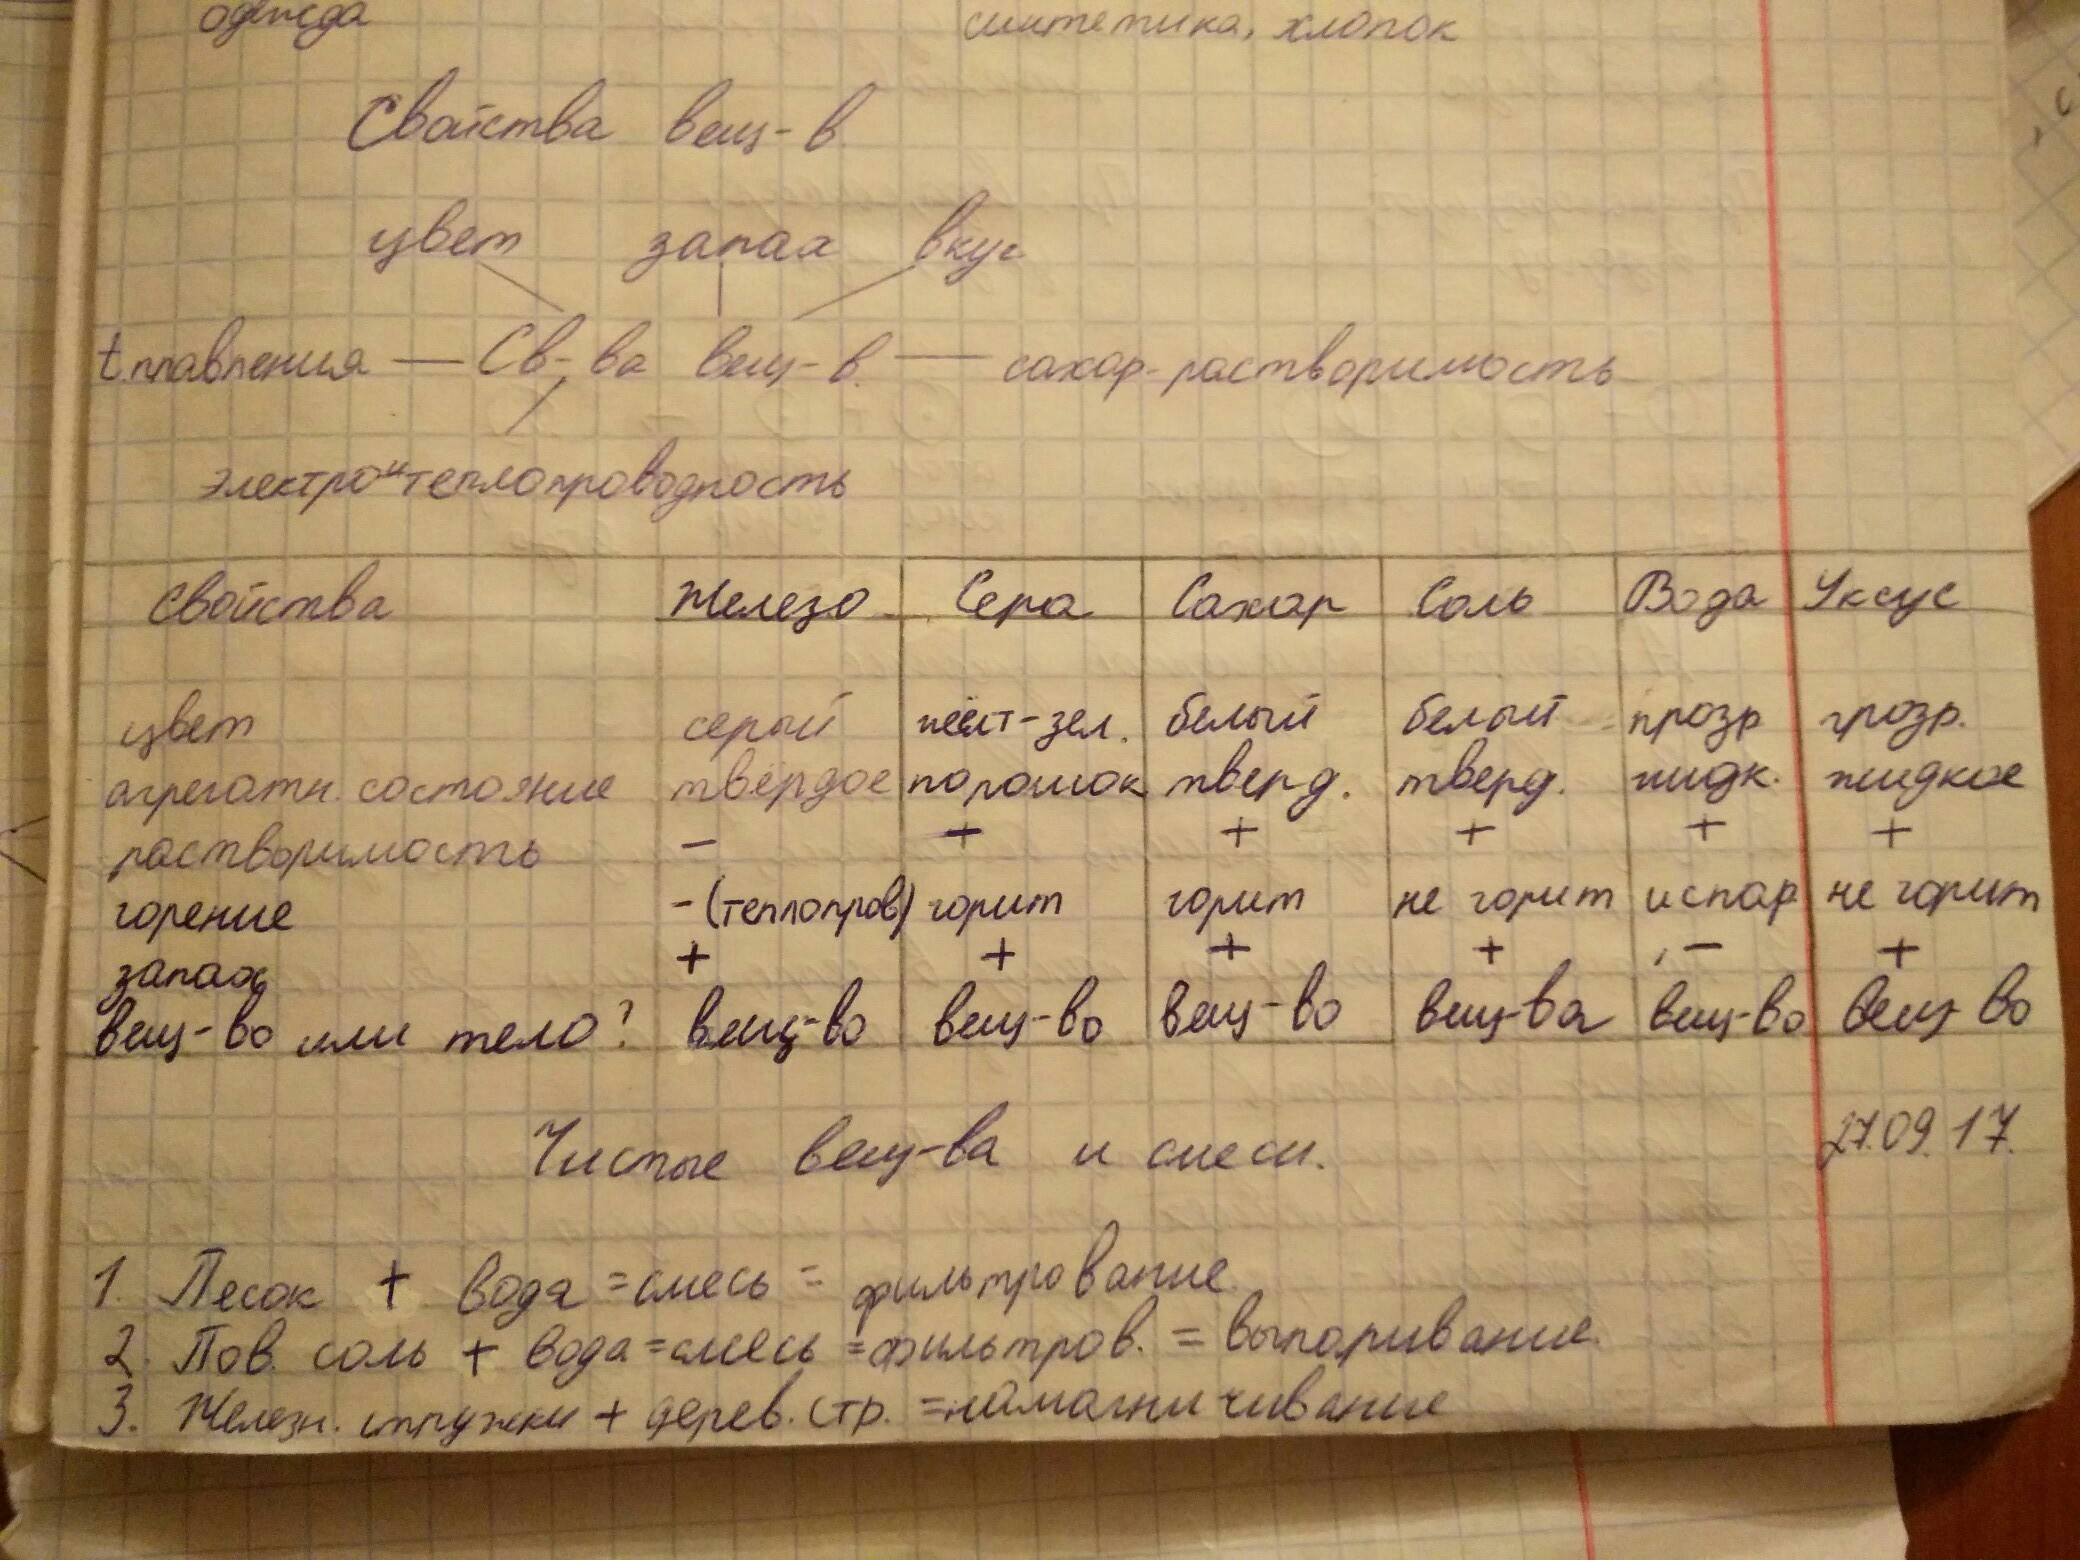 одежда синтетика, хлопок
Свойства вещ-в.
цвет запах вкус
t плавления — Св-ва вещ-в. — сахар-растворимость
электро и теплопроводность
Свойства Железо Сера Сахар Соль Вода Уксус
цвет серый жёлт-зел. белый белый прозр прозр.
агрегатн. состояние твёрдое порошок тверд. тверд. жидк. жидкое
растворимость - + + + + +
горение - (теплопров) горит горит не горит испар не горит
запах + + + + - +
вещ-во или тело? вещ-во вещ-во вещ-во вещ-ва вещ-во вещ-во
Чистые вещ-ва и смеси. 27.09.17.
1. Песок + вода = смесь = фильтрование.
2. Пов. соль + вода = смесь = фильтров. = выпаривание.
3. Железн. стружки + дерев. стр. = намагничивание